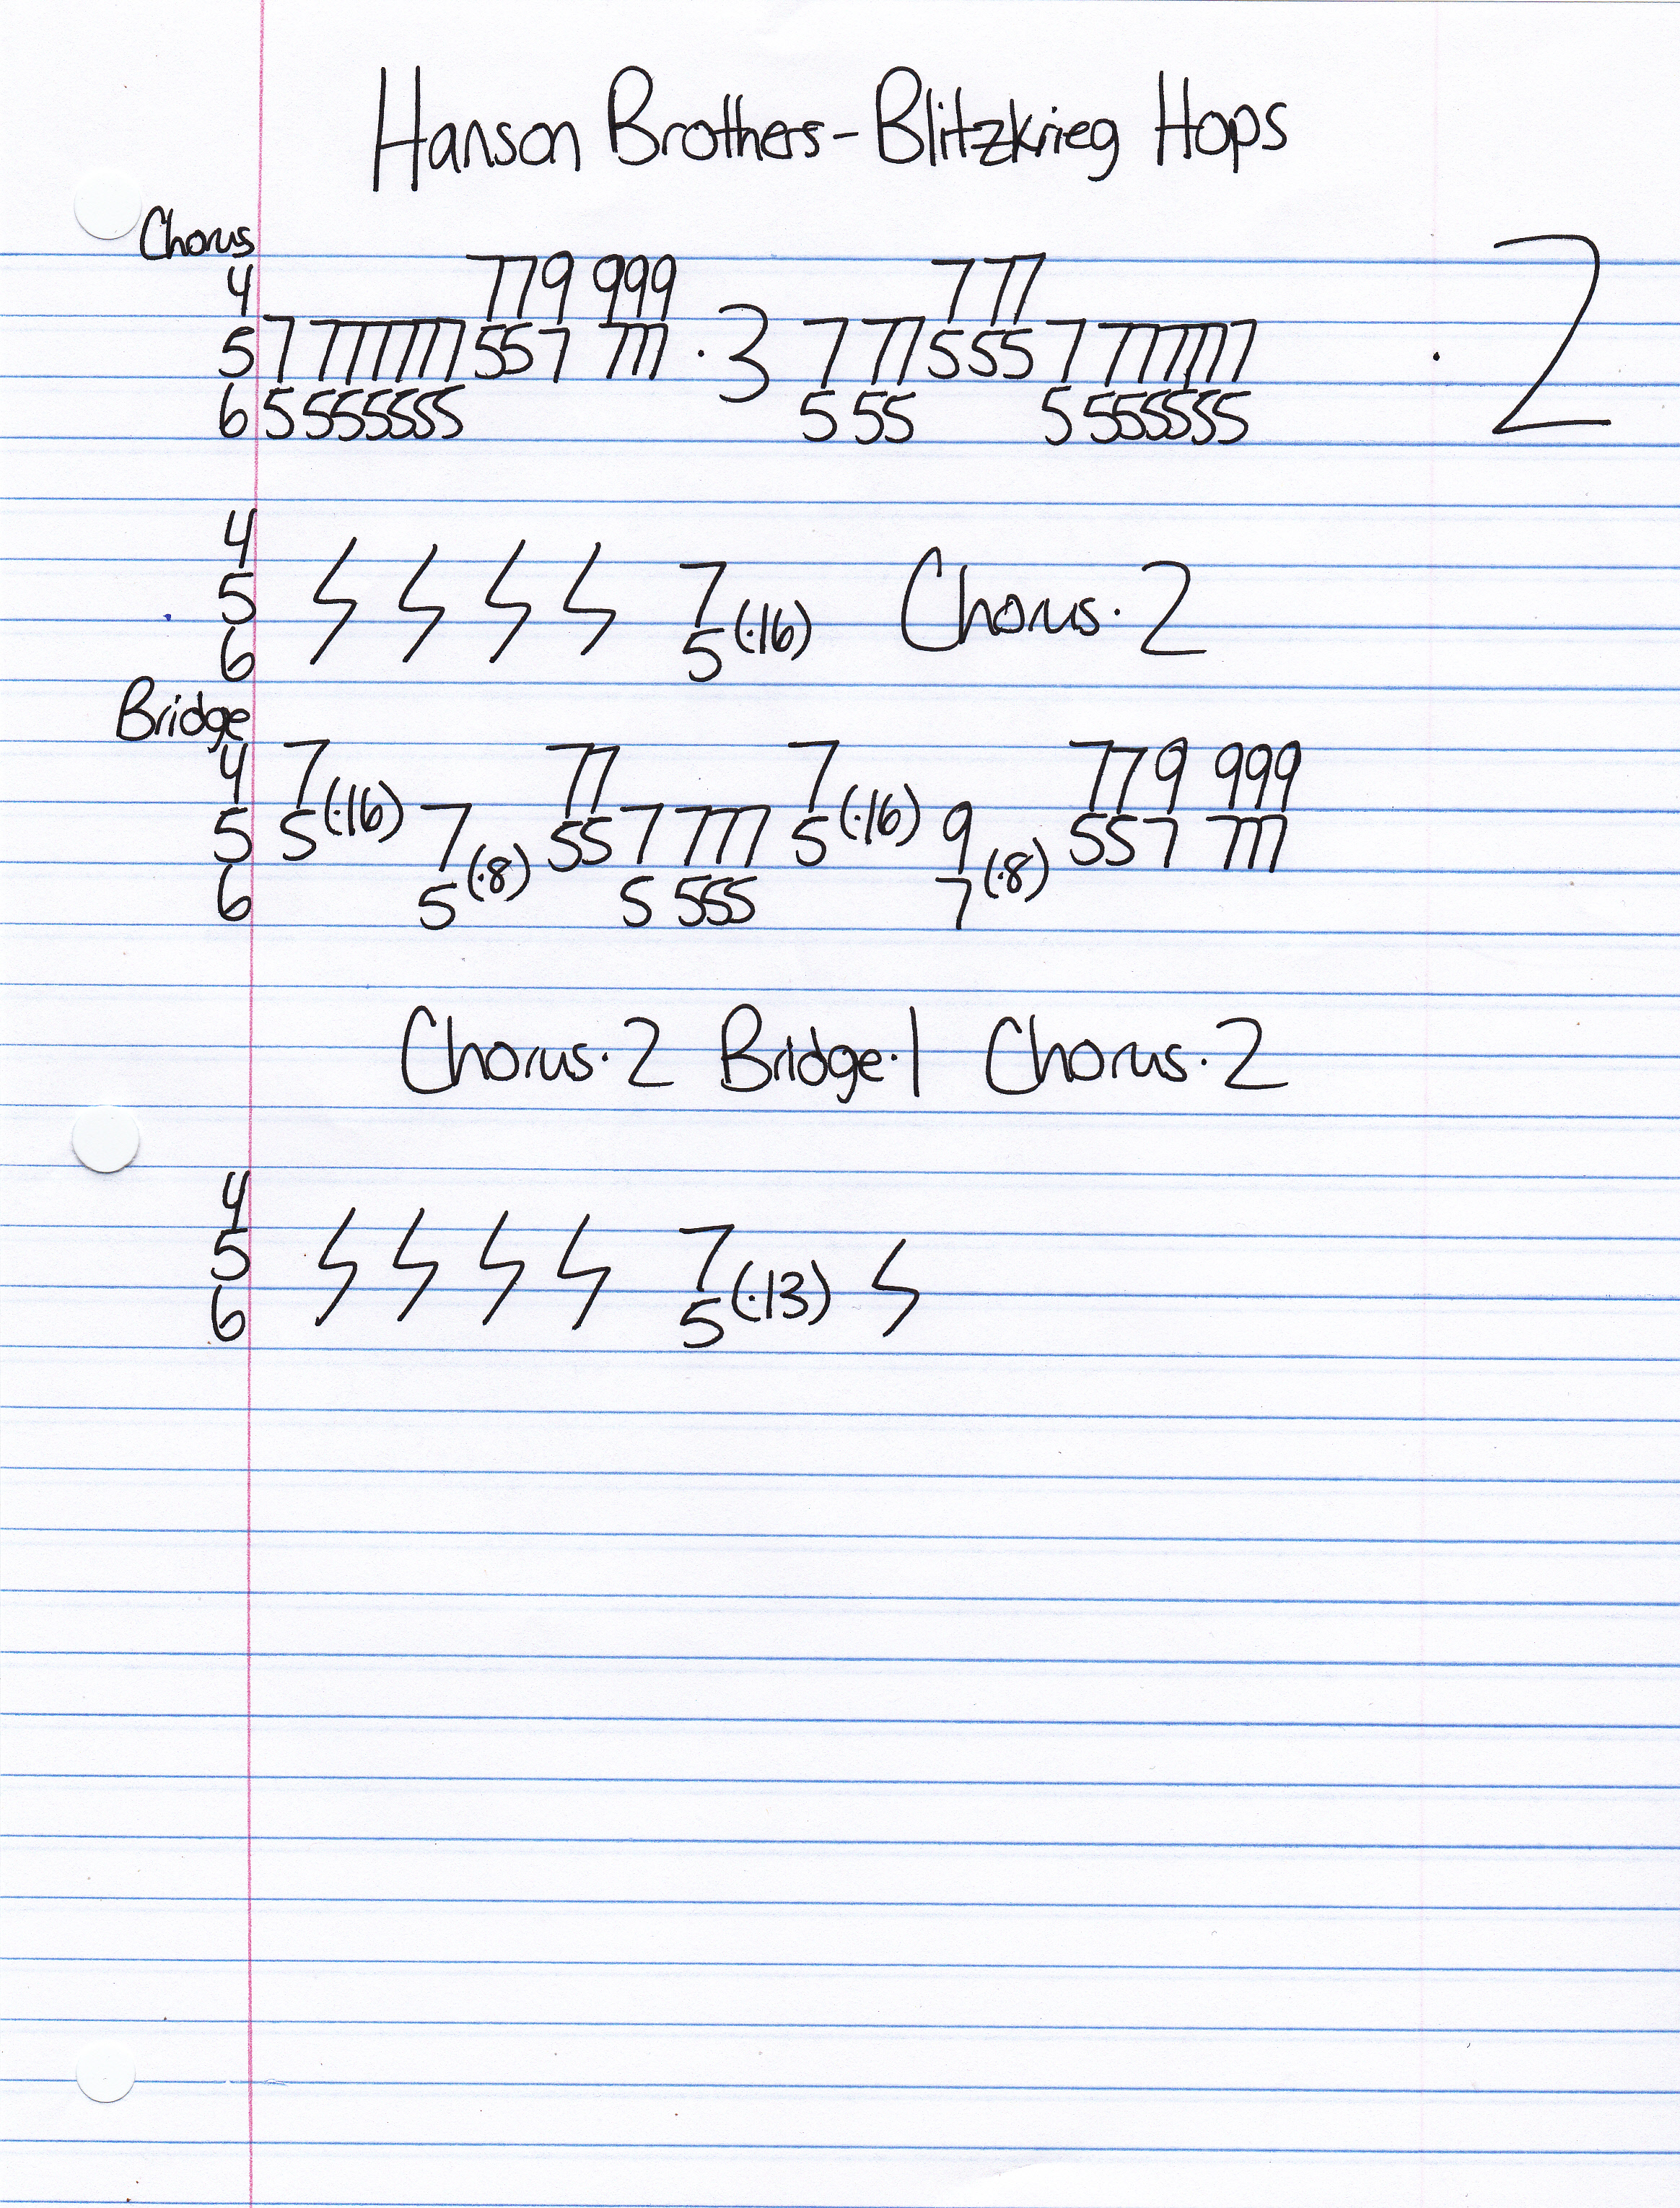 Hanson Brothers - Blitzkrieg Hops
Chorus
4 779 999 7 77
5 7 777777 557 777 ·3 7 77 555 7 777777 ·2
6 5 555555 5 55 5 555555
4
5 7 (·16) Chorus·2
6 5
Bridge
4 7 77 7 779 999
5 5 (·16) 7 55 7 777 5 (·16) 9 557 777
6 5 (·8) 5 555 7 (·8)
Chorus·2 Bridge·1 Chorus·2
4
5 7 (·13)
6 5